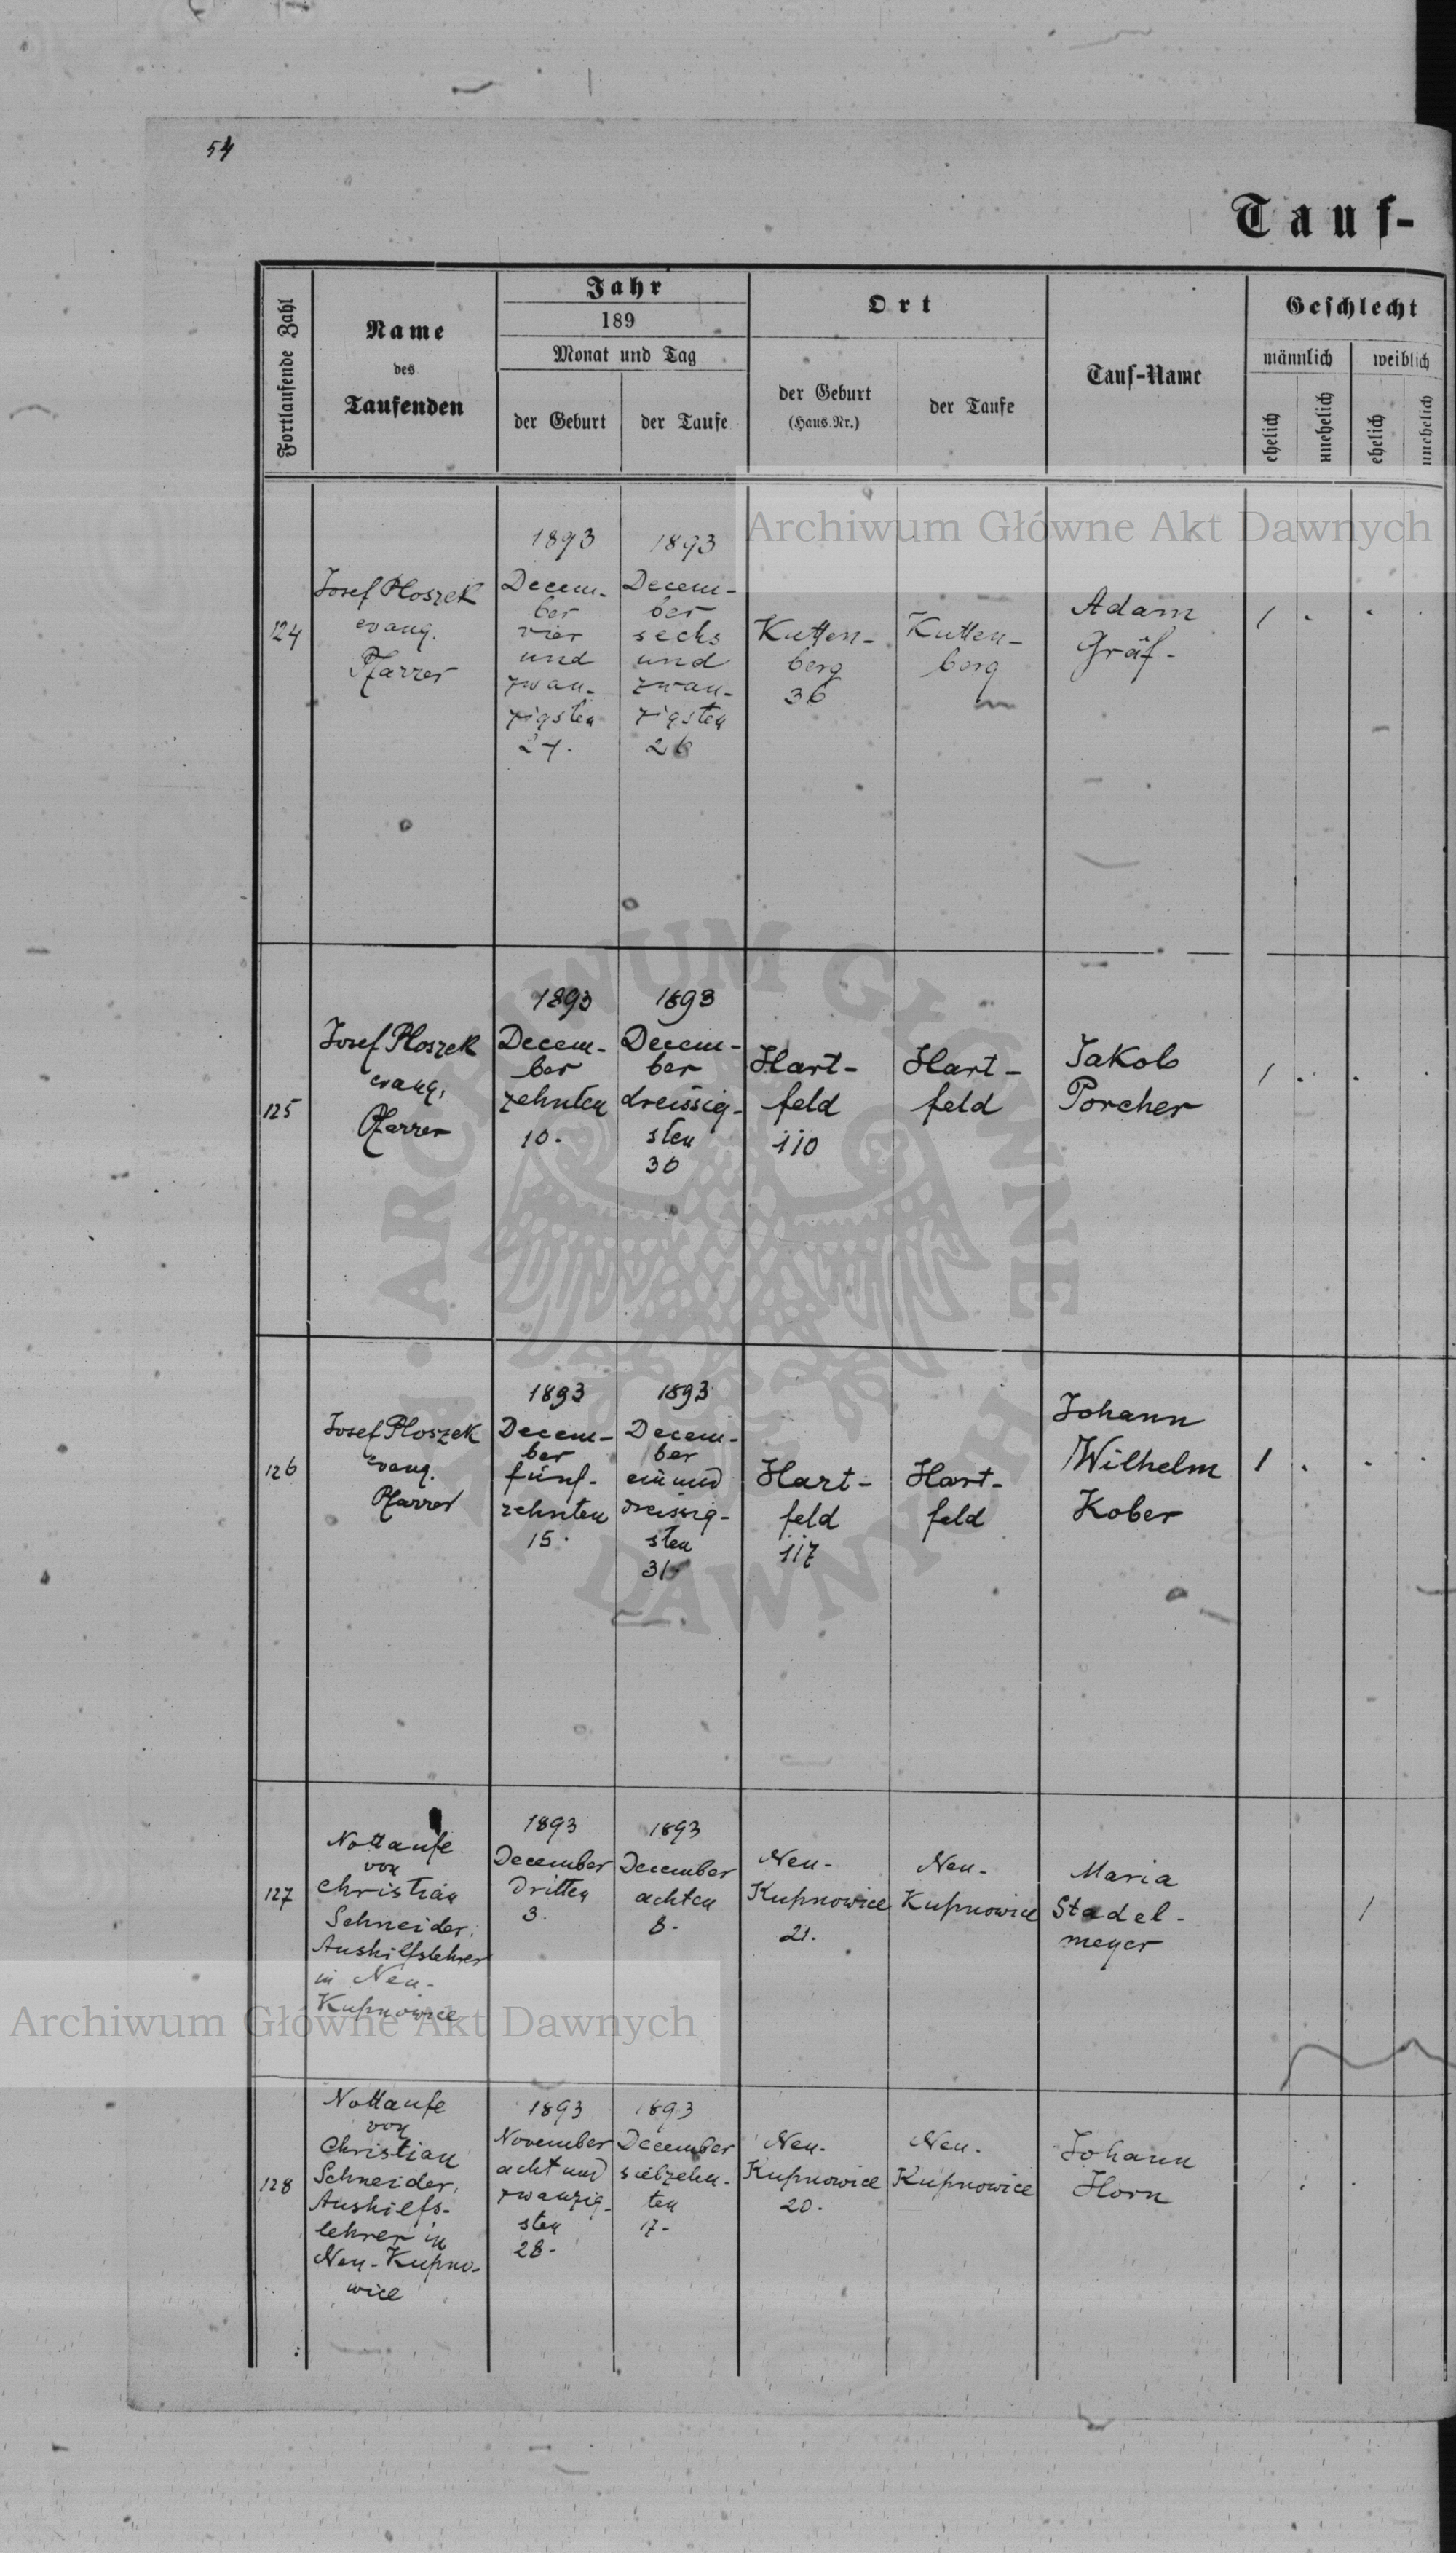 54
Tauf-
Fortlaufende Zahl
Name
des
Taufenden
Jahr
189
Monat und Tag
der Geburt
der Taufe
Ort
der Geburt
(Haus-Nr.)
der Taufe
Tauf-Name
Geschlecht
männlich
weiblich
ehelich
unehelich
ehelich
unehelich
Archiwum Główne Akt Dawnych
124
Josef Ploszek
evang.
Pfarrer
1893
Decem-
ber
vier
und
zwan-
zigsten
24.
1893
Decem-
ber
sechs
und
zwan-
zigsten
26
Kutten-
berg
36
Kutten-
berg
Adam
Gräf-
1
125
Josef Ploszek
evang.
Pfarrer
1893
Decem-
ber
zehnten
10.
1893
Decem-
ber
dreissig-
sten
30
Hart-
feld
110
Hart-
feld
Jakob
Porcher
1
126
Josef Ploszek
evang.
Pfarrer
1893
Decem-
ber
fünf-
zehnten
15.
1893
Decem-
ber
ein und
dreissig-
sten
31.
Hart-
feld
117
Hart-
feld
Johann
Wilhelm
Kober
1
127
Nottaufe
von
Christian
Schneider,
Aushilfslehrer
in Neu-
Kupnowice
1893
December
dritten
3.
1893
December
achten
8.
Neu-
Kupnowice
21.
Neu-
Kupnowice
Maria
Stadel-
meyer
1
Archiwum Główne Akt Dawnych
128
Nottaufe
von
Christian
Schneider,
Aushilfs-
lehrer in
Neu-Kupno-
wice
1893
November
acht und
zwanzig-
sten
28.
1893
December
siebzehn-
ten
17.
Neu-
Kupnowice
20.
Neu-
Kupnowice
Johann
Horn
ARCHIWUM GŁÓWNE AKT DAWNYCH